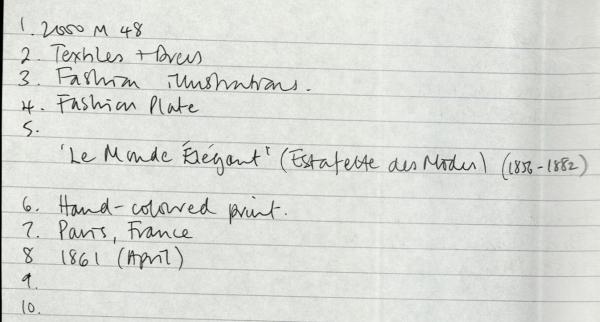 1. 2000 M 48
2. Textiles + Dress
3. Fashion illustrations.
4. Fashion Plate
5.
'Le Monde Élégant' (Estafette des Modes) (1856-1882)
6. Hand-coloured print.
7. Paris, France
8 1861 (April)
9.
10.